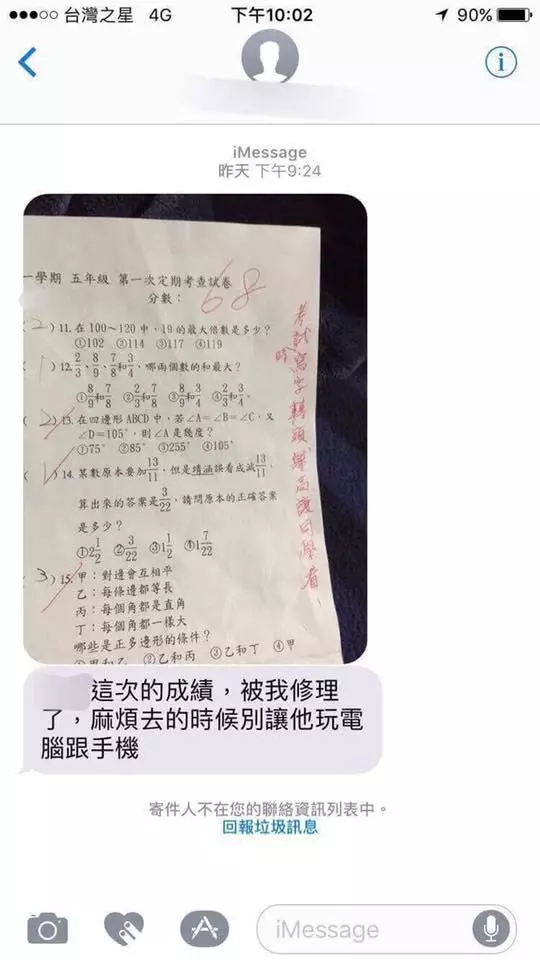 台灣之星 4G 下午10:02 90%
iMessage
昨天 下午9:24
一學期 五年級 第一次定期考查試卷
分數： 68
(2) 11. 在100～120中，19的最大倍數是多少？
①102 ②114 ③117 ④119
(1) 12. 2/3、8/9、7/8和3/4，哪兩個數的和最大？
①8/9和7/8 ②2/3和7/8 ③8/9和3/4 ④2/3和3/4。
(2) 13. 在四邊形ABCD中，若∠A=∠B=∠C，又
∠D=105°，則∠A是幾度？
①75° ②85° ③255° ④105°
14. 某數原本要加13/11，但是靖涵誤看成減13/11，
算出來的答案是3/22，請問原本的正確答案
是多少？
①2 1/2 ②3/22 ③1 1/2 ④1 7/22
(3) 15. 甲：對邊會互相平
乙：每條邊都等長
丙：每個角都是直角
丁：每個角都一樣大
哪些是正多邊形的條件？
①甲和乙 ②乙和丙 ③乙和丁 ④甲
考試時寫字轉頭解面讓同學看
這次的成績，被我修理
了，麻煩去的時候別讓他玩電
腦跟手機
寄件人不在您的聯絡資訊列表中。
回報垃圾訊息
iMessage